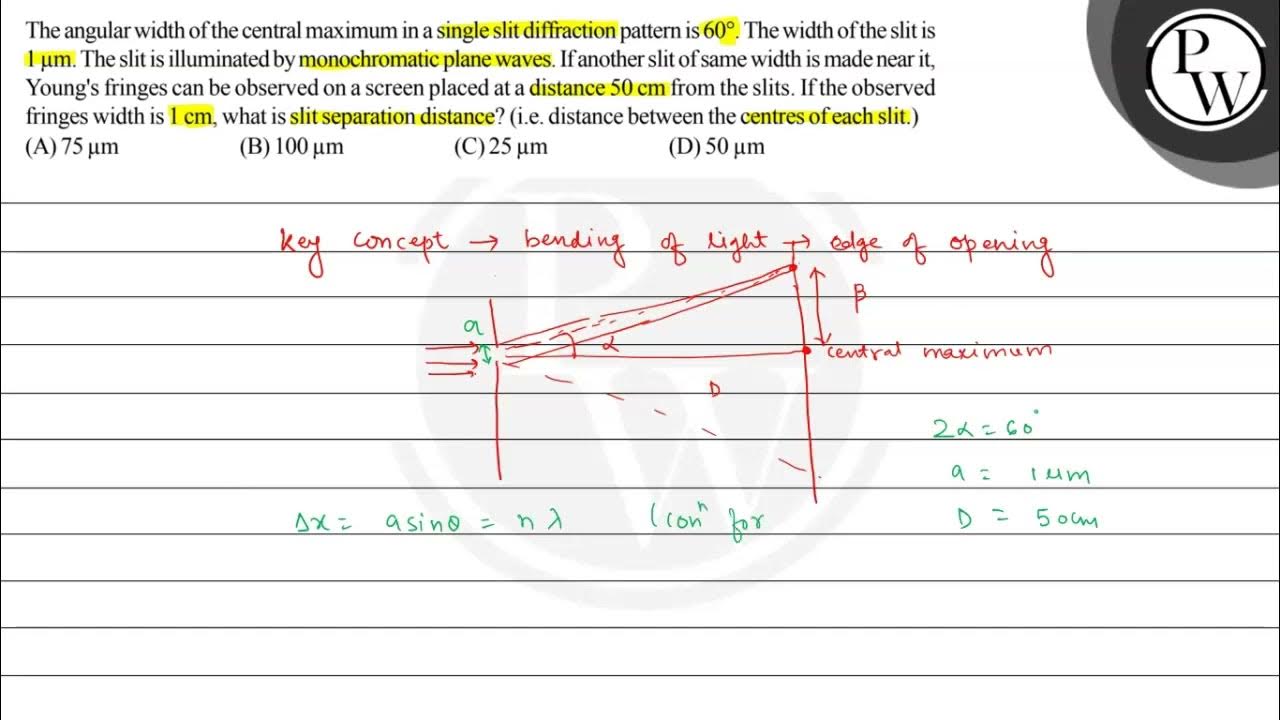 The angular width of the central maximum in a single slit diffraction pattern is 60°. The width of the slit is
1 μm. The slit is illuminated by monochromatic plane waves. If another slit of same width is made near it,
Young's fringes can be observed on a screen placed at a distance 50 cm from the slits. If the observed
fringes width is 1 cm, what is slit separation distance? (i.e. distance between the centres of each slit.)
(A) 75 μm (B) 100 μm (C) 25 μm (D) 50 μm
P
W
Key concept → bending of light → edge of opening
β
a
α
central maximum
D
2α = 60°
a = 1 μm
Δx = a sinθ = nλ (conⁿ for
D = 50cm